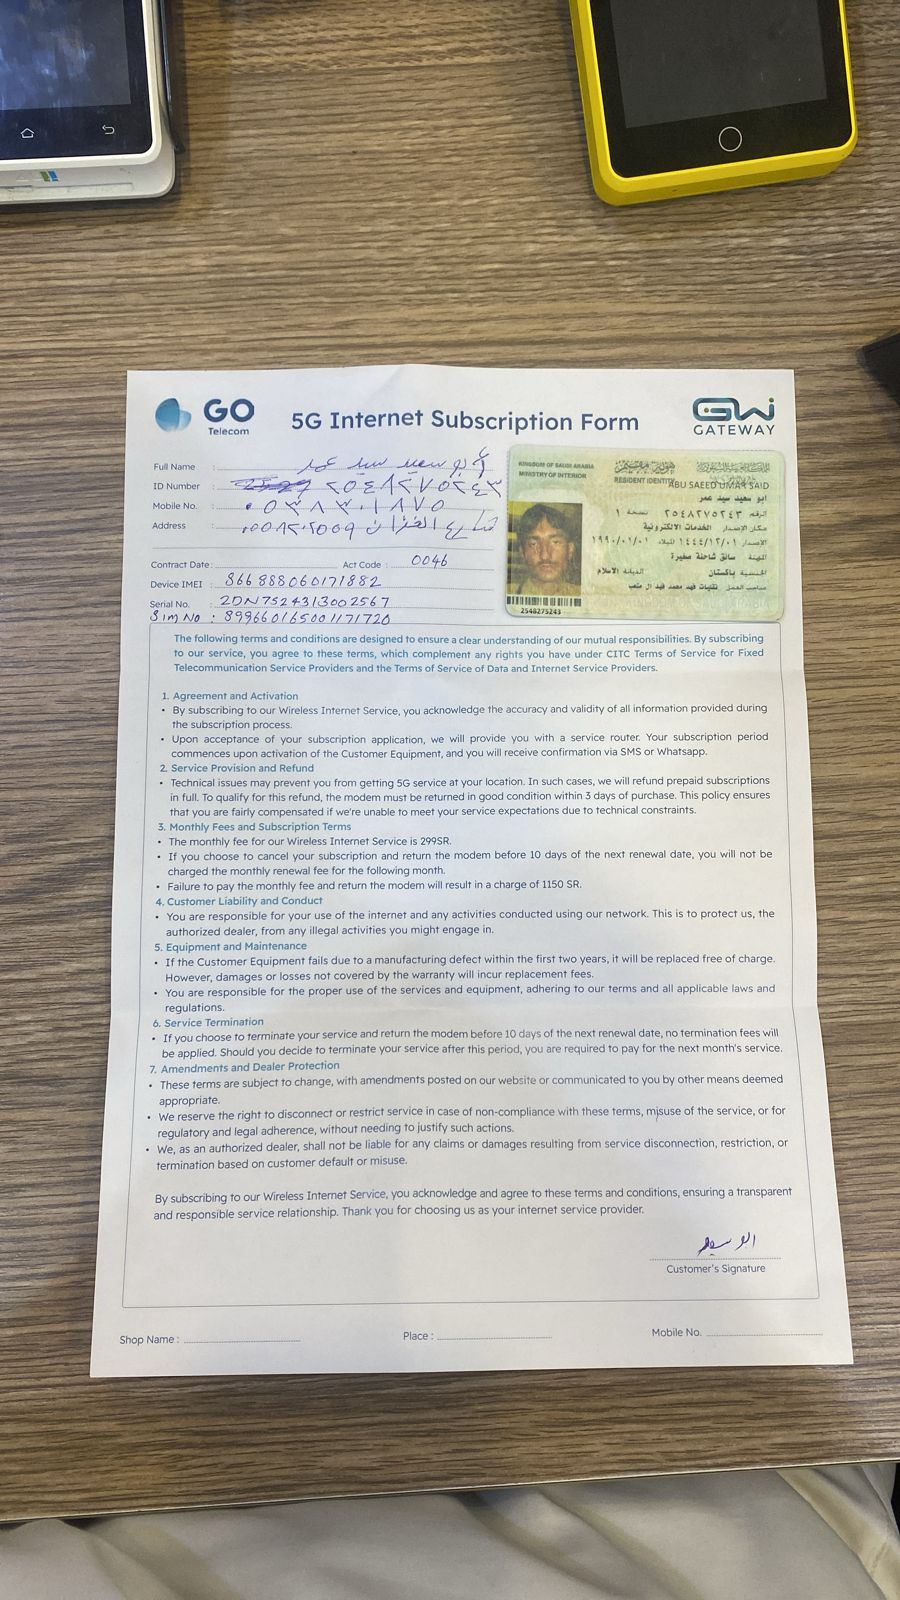 GO
Telecom
5G Internet Subscription Form
GW
GATEWAY
Full Name :
أبو سعيد سيد عمر
ID Number : ٢٥٤٨٢٧٥٢٤٣
Mobile No. : ٠٥٣٨٣٠١٨٧٥
Address : شارع الخزان
Contract Date : Act Code : 0046
Device IMEI : 866888060171882
Serial No. : 2DN7524313002567
Sim No : 899660165001171720
KINGDOM OF SAUDI ARABIA
MINISTRY OF INTERIOR
RESIDENT IDENTITY
هوية مقيم
ABU SAEED UMAR SAID
ابو سعيد سيد عمر
الرقم ٢٥٤٨٢٧٥٢٤٣ نسخة ١
مكان الإصدار الخدمات الالكترونية
الإصدار ١٤٤٤/١٢/٠١ الميلاد ١٩٩٠/٠١/٠١
المهنة سائق شاحنة صغيرة
الجنسية باكستان الديانة الاسلام
صاحب العمل
2548275243
The following terms and conditions are designed to ensure a clear understanding of our mutual responsibilities. By subscribing
to our service, you agree to these terms, which complement any rights you have under CITC Terms of Service for Fixed
Telecommunication Service Providers and the Terms of Service of Data and Internet Service Providers.
1. Agreement and Activation
• By subscribing to our Wireless Internet Service, you acknowledge the accuracy and validity of all information provided during
the subscription process.
• Upon acceptance of your subscription application, we will provide you with a service router. Your subscription period
commences upon activation of the Customer Equipment, and you will receive confirmation via SMS or Whatsapp.
2. Service Provision and Refund
• Technical issues may prevent you from getting 5G service at your location. In such cases, we will refund prepaid subscriptions
in full. To qualify for this refund, the modem must be returned in good condition within 3 days of purchase. This policy ensures
that you are fairly compensated if we're unable to meet your service expectations due to technical constraints.
3. Monthly Fees and Subscription Terms
• The monthly fee for our Wireless Internet Service is 299SR.
• If you choose to cancel your subscription and return the modem before 10 days of the next renewal date, you will not be
charged the monthly renewal fee for the following month.
• Failure to pay the monthly fee and return the modem will result in a charge of 1150 SR.
4. Customer Liability and Conduct
• You are responsible for your use of the internet and any activities conducted using our network. This is to protect us, the
authorized dealer, from any illegal activities you might engage in.
5. Equipment and Maintenance
• If the Customer Equipment fails due to a manufacturing defect within the first two years, it will be replaced free of charge.
However, damages or losses not covered by the warranty will incur replacement fees.
• You are responsible for the proper use of the services and equipment, adhering to our terms and all applicable laws and
regulations.
6. Service Termination
• If you choose to terminate your service and return the modem before 10 days of the next renewal date, no termination fees will
be applied. Should you decide to terminate your service after this period, you are required to pay for the next month's service.
7. Amendments and Dealer Protection
• These terms are subject to change, with amendments posted on our website or communicated to you by other means deemed
appropriate.
• We reserve the right to disconnect or restrict service in case of non-compliance with these terms, misuse of the service, or for
regulatory and legal adherence, without needing to justify such actions.
• We, as an authorized dealer, shall not be liable for any claims or damages resulting from service disconnection, restriction, or
termination based on customer default or misuse.
By subscribing to our Wireless Internet Service, you acknowledge and agree to these terms and conditions, ensuring a transparent
and responsible service relationship. Thank you for choosing us as your internet service provider.
ابو سعيد
Customer's Signature
Shop Name : Place : Mobile No.